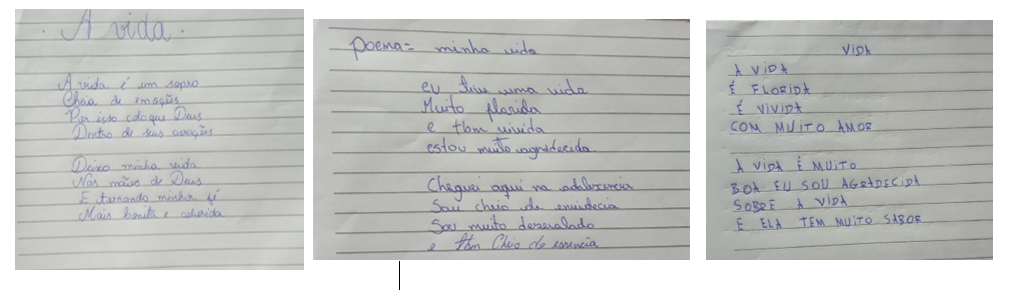 · A vida ·
A vida é um sopro
Cheia de emoções
Por isso coloque Deus
Dentro de seus corações
Deixo minha vida
Nas mãos de Deus
E tornando minha fé
Mais bonita e colorida
Poema= minha vida
eu tive uma vida
Muito florida
e tbm vivida
estou muito agradecida
Cheguei aqui na adolecencia
Sou cheio de
Sou muito desenrolado
e tbm Cheio de essencia
VIDA
A VIDA
É FLORIDA
É VIVIDA
COM MUITO AMOR
A VIDA É MUITO
BOA EU SOU AGRADECIDA
SOBRE A VIDA
E ELA TEM MUITO SABOR